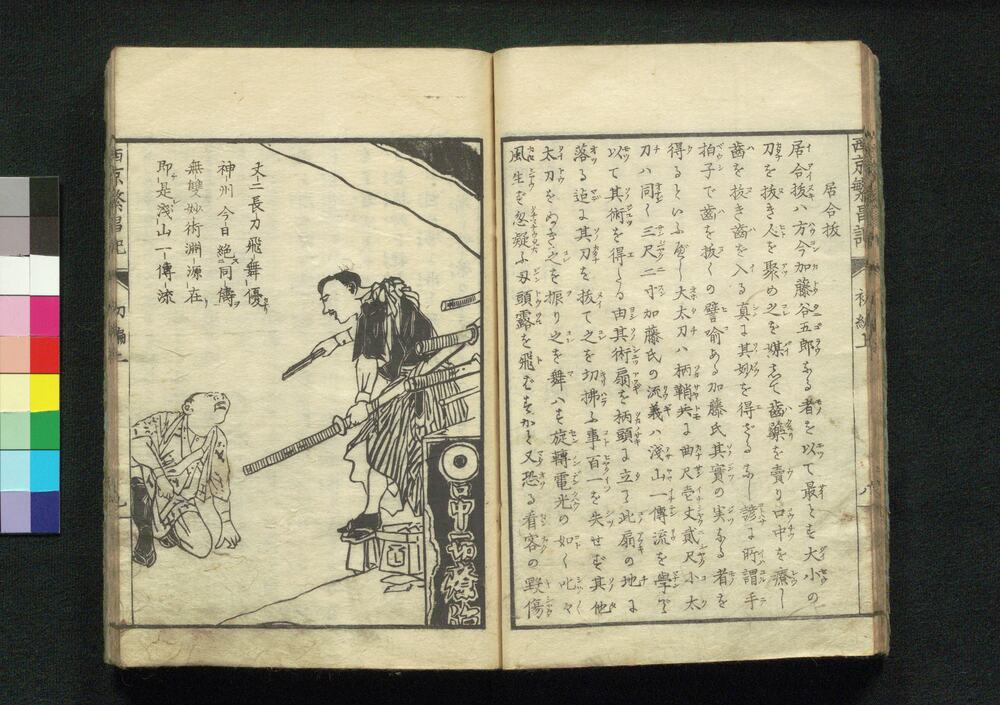 西京繁昌記 初編上 八
居合抜
居合抜ハ方今加藤谷五郎なる者を以て最とも大小の
刀を抜き人を聚め之を媒として歯藥を賣り口中を療し
歯を抜き歯を入る真に其妙を得ざるなし諺に所謂手
拍子で歯を抜くの譬喩ある加藤氏其實の実なる者を
得るといふべし大太刀ハ柄鞘共に曲尺壱丈貳尺小太
刀ハ同く三尺二寸加藤氏の流義ハ淺山一傳流を學び
以て其術を得たる由其術扇を柄頭に立て此扇の地に
落る迄に其刀を抜て之を切拂ふ事百一を失せず其他
太刀をぬき之を振り之を舞ハす旋轉電光の如く叱々
風生を忽疑ふ刄頭露を飛むすかと又恐る看客の野傷
丈二長刀飛舞優
神州今日絶同儔
無雙妙術淵源在
即是淺山一傳流
口中一切療治
西京繁昌記 初編上